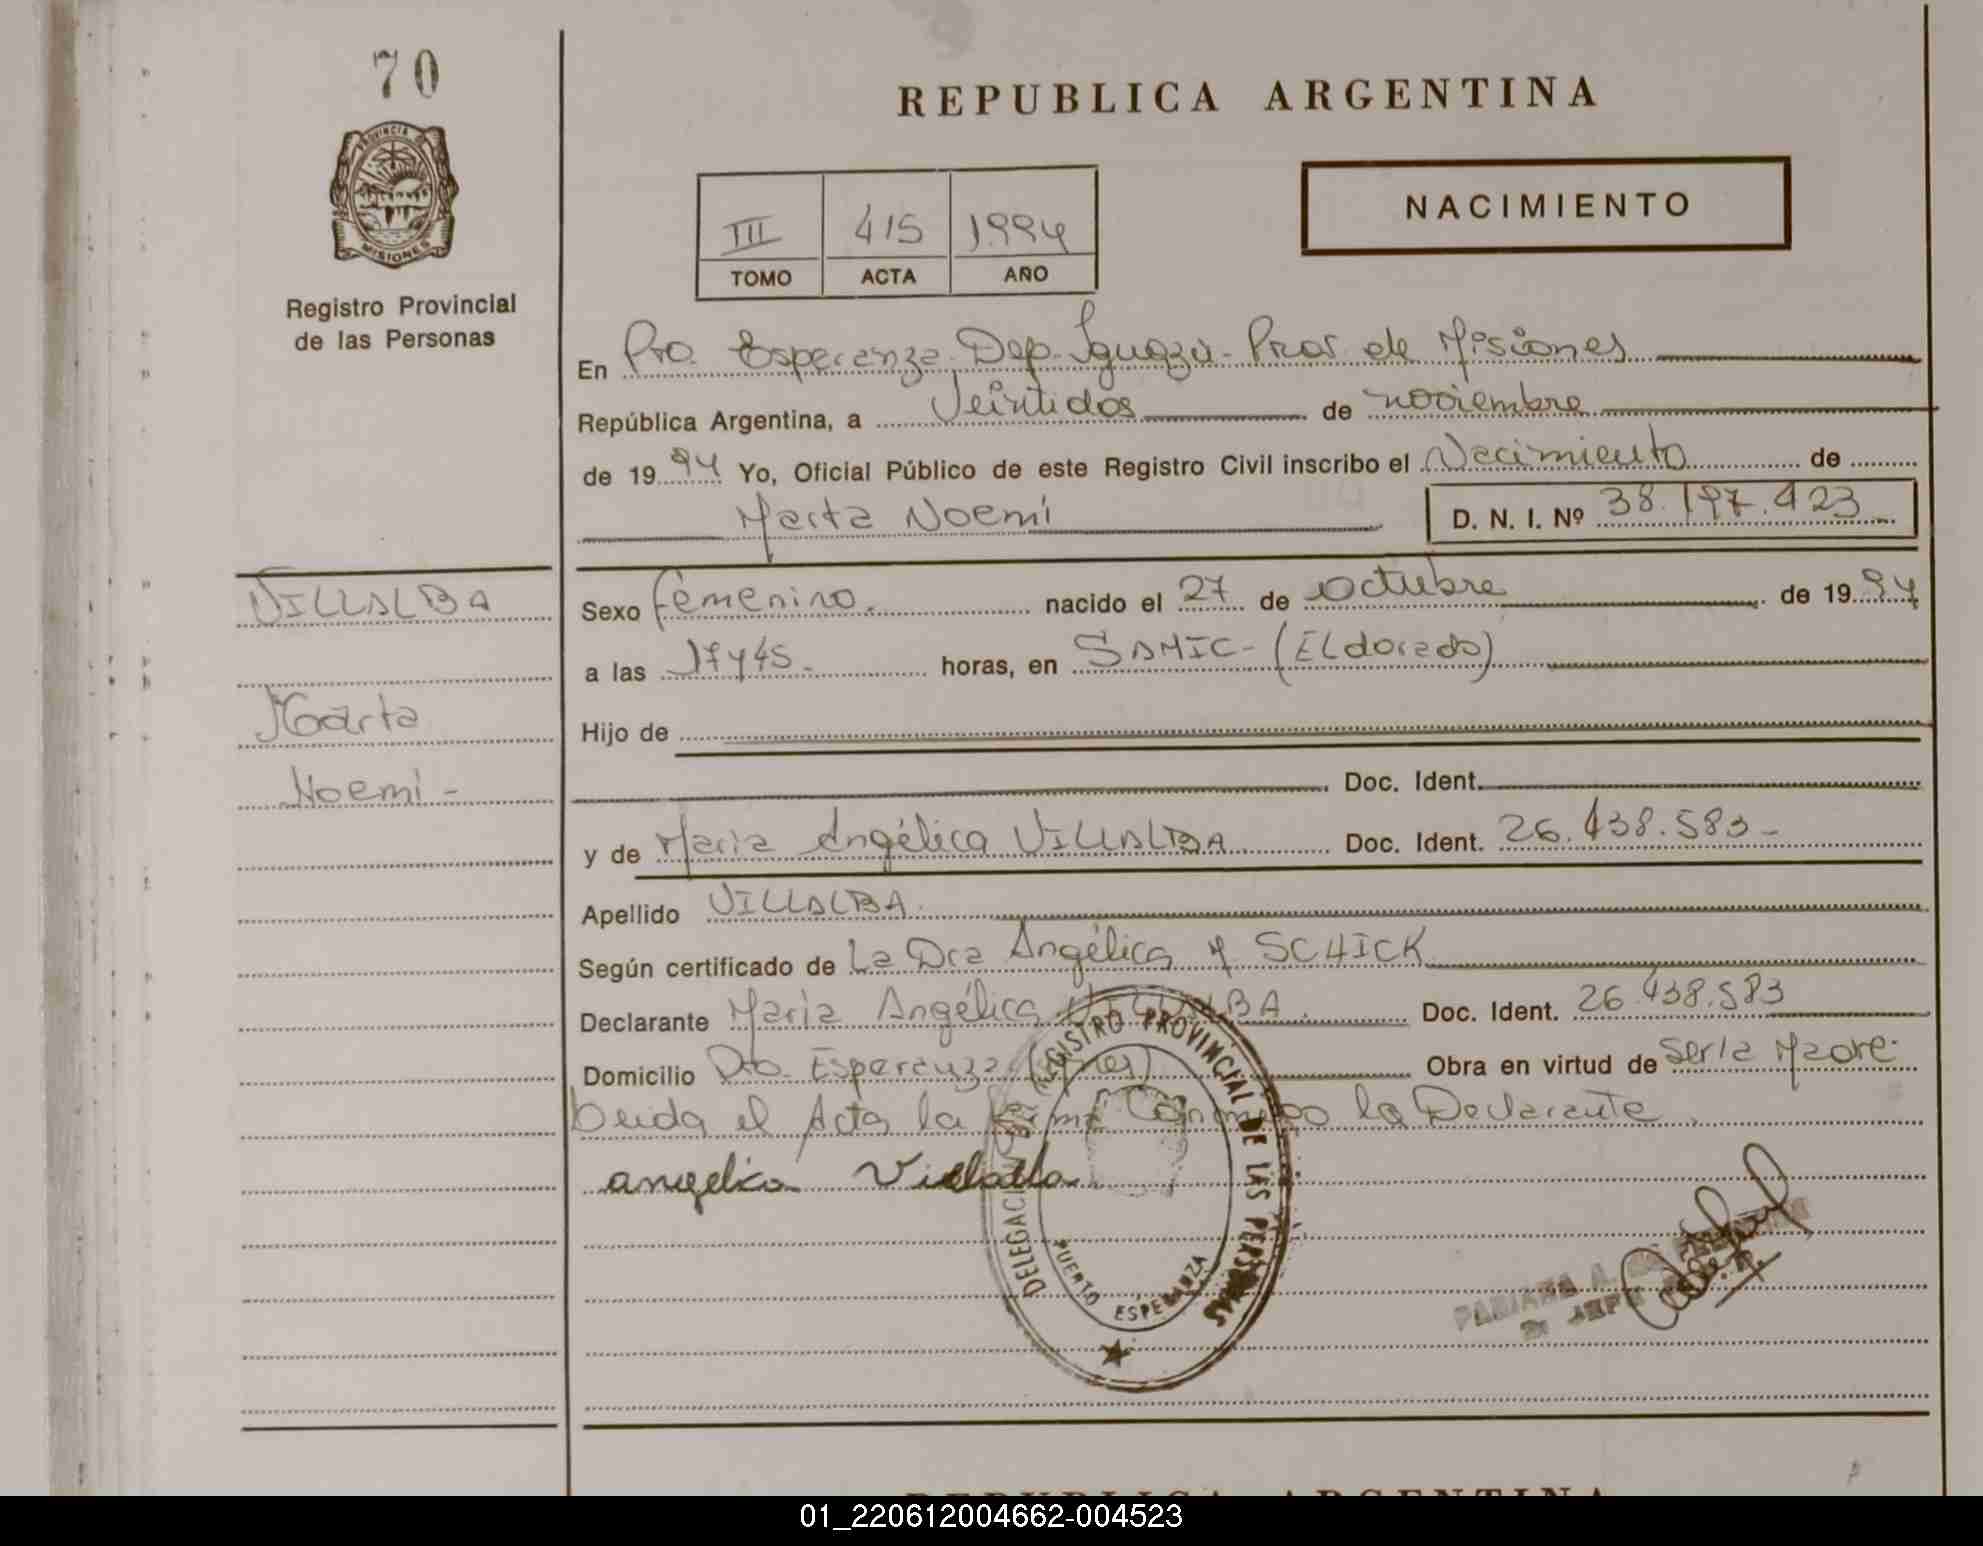 70
PROVINCIA DE
MISIONES
Registro Provincial
de las Personas
REPUBLICA ARGENTINA
NACIMIENTO
III 415 1994
TOMO ACTA AÑO
En Pto. Esperanza. Dep. Iguazú - Prov. de Misiones
República Argentina, a Veintidos de noviembre
de 1994 Yo, Oficial Público de este Registro Civil inscribo el Nacimiento de
Marta Noemi D. N. I. Nº 38.197.423
VILLALBA
Marta
Noemi -
Sexo femenino. nacido el 27 de octubre de 1994
a las 17y45. horas, en SAMIC - (ELdorado)
Hijo de
Doc. Ident.
y de Maria Angélica VILLALBA Doc. Ident. 26.438.583 -
Apellido VILLALBA.
Según certificado de La Dra Angélica M SCHICK
Declarante Maria Angélica VILLALBA. Doc. Ident. 26.438.583
Domicilio Pto. Esperanza (Mnes) Obra en virtud de ser la Madre.
Leida el Acta la firma Conmigo la Declarante.
angelica Villalba
DELEGACION DEL REGISTRO PROVINCIAL DE LAS PERSONAS
PUERTO ESPERANZA
REPUBLICA ARGENTINA
01_220612004662-004523